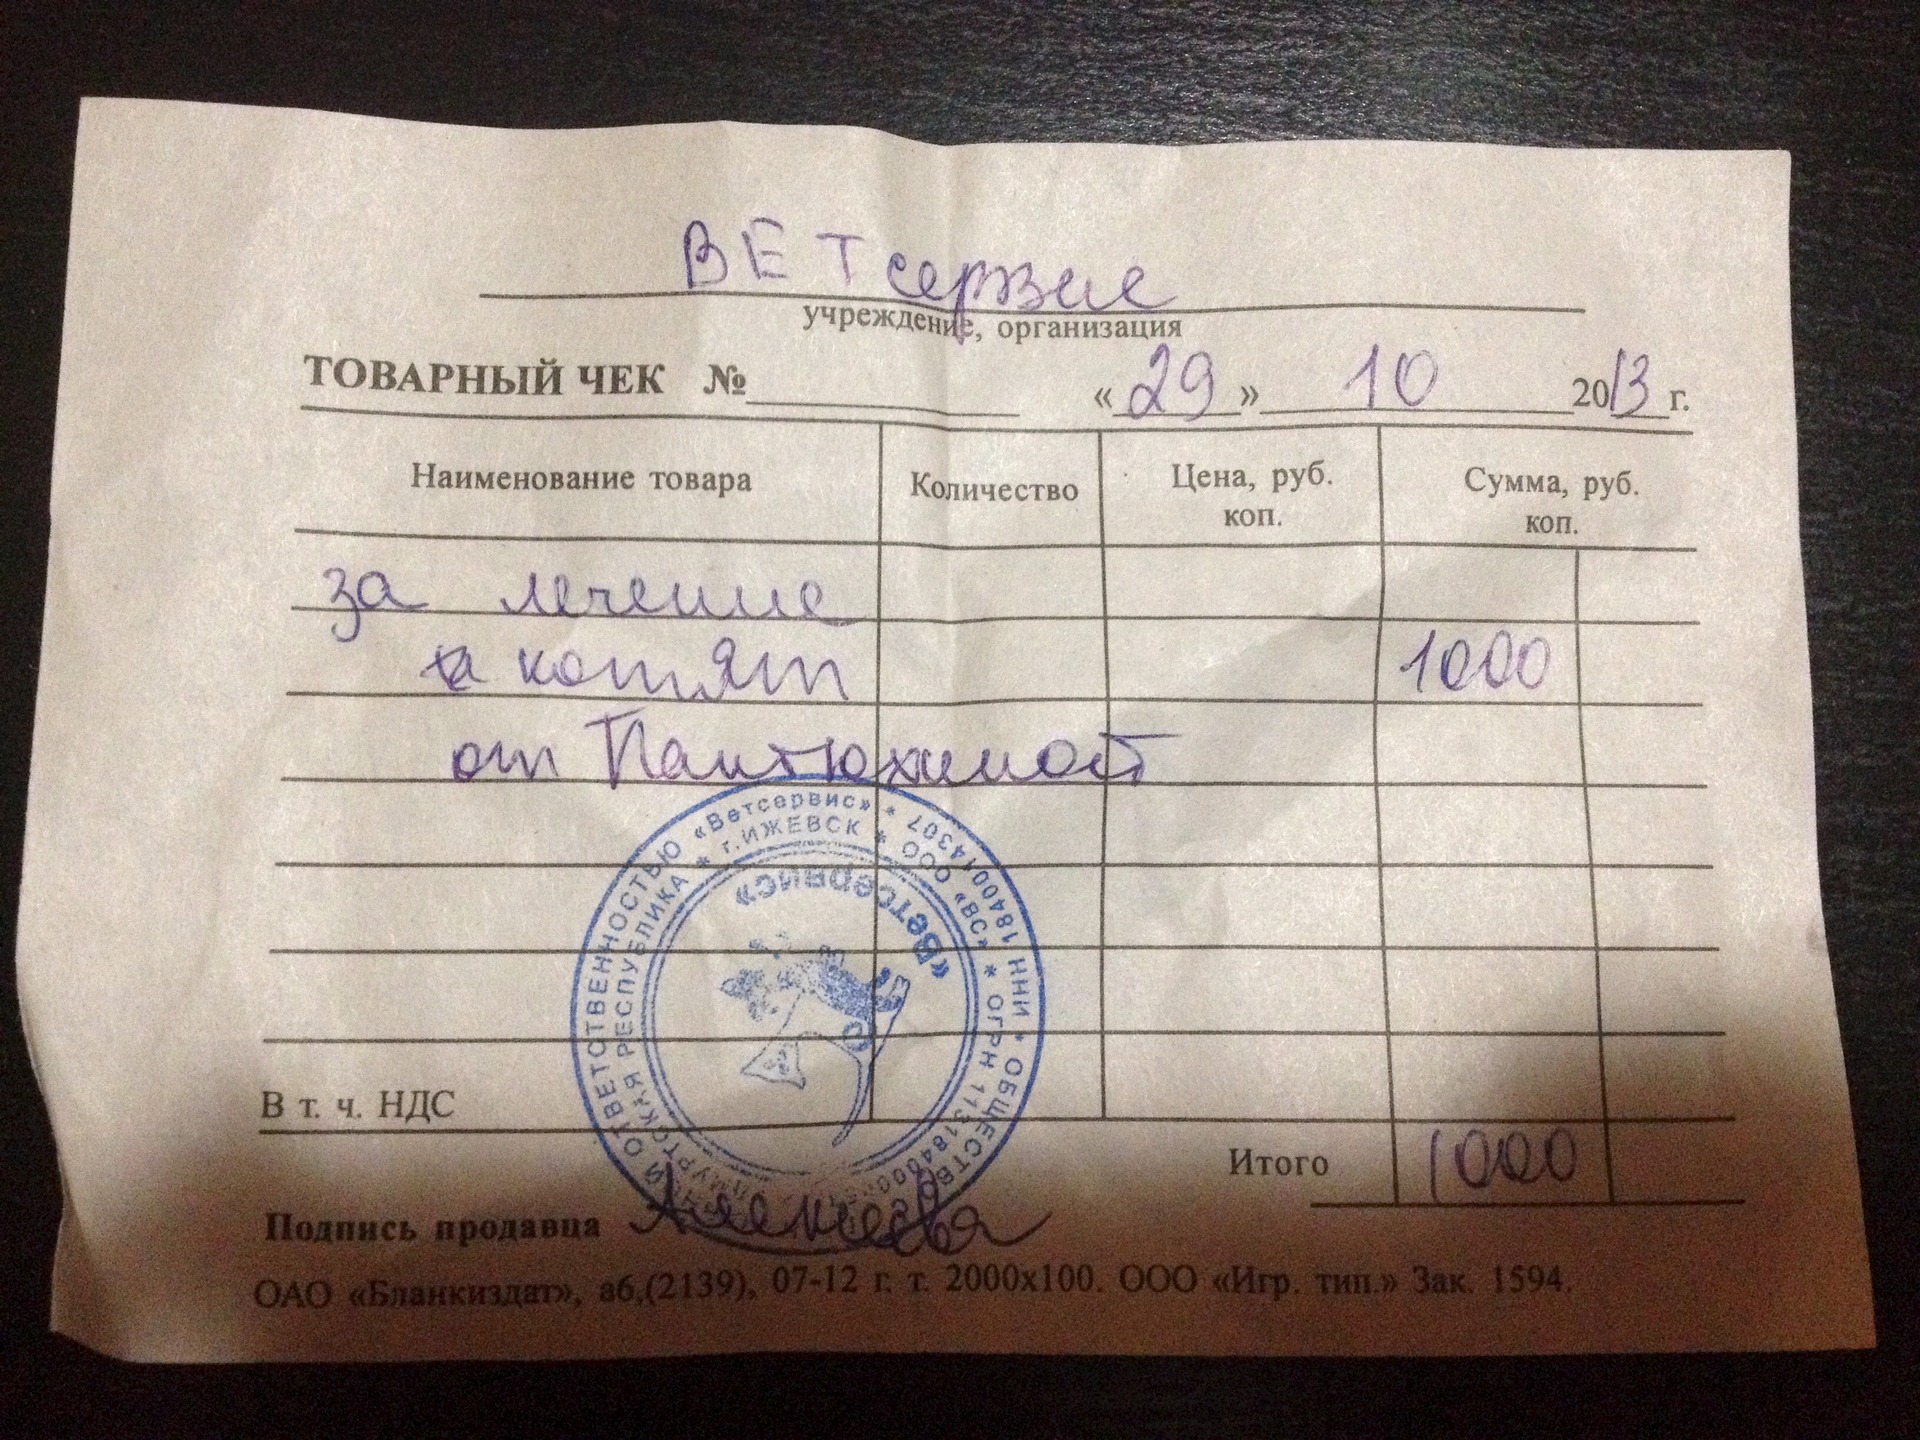 ВЕТсервис
учреждение, организация
ТОВАРНЫЙ ЧЕК № «29» 10 2013 г.
Наименование товара Количество Цена, руб. коп. Сумма, руб. коп.
за лечение
котят 1000
от Пантюхиной
«Ветсервис» * ИНН 1840014307 * ОБЩЕСТВО ОТВЕТСТВЕННОСТЬЮ
УДМУРТСКАЯ РЕСПУБЛИКА * г. ИЖЕВСК * ООО «ВС» * ОГРН
«Ветсервис»
В т. ч. НДС
Итого 1000
Подпись продавца
ОАО «Бланкиздат», а6,(2139), 07-12 г. т. 2000х100. ООО «Игр. тип.» Зак. 1594.